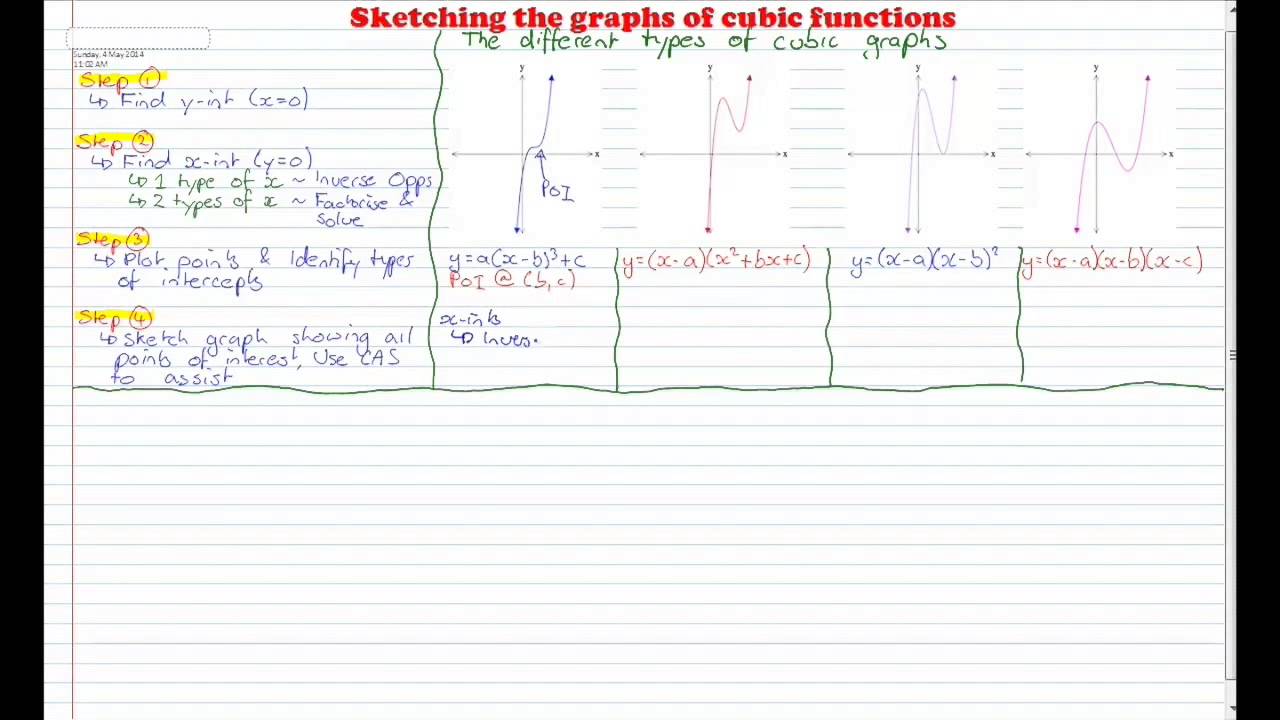 Sketching the graphs of cubic functions
The different types of cubic graphs
Sunday, 4 May 2014
11:02 AM
Step 1
↳ Find y-int (x=0)
Step 2
↳ Find x-int (y=0)
↳ 1 type of x ~ Inverse Opps
↳ 2 types of x ~ Factorise &
Solve
Step 3
↳ Plot points & Identify types
of intercepts
Step 4
↳ Sketch graph showing all
points of interest, Use CAS
to assist
y
x
PoI
y=a(x-b)³+c
PoI @ (b,c)
x-ints
↳ Invers
y
x
y=(x-a)(x²+bx+c)
y
x
y=(x-a)(x-b)²
y
x
y=(x-a)(x-b)(x-c)